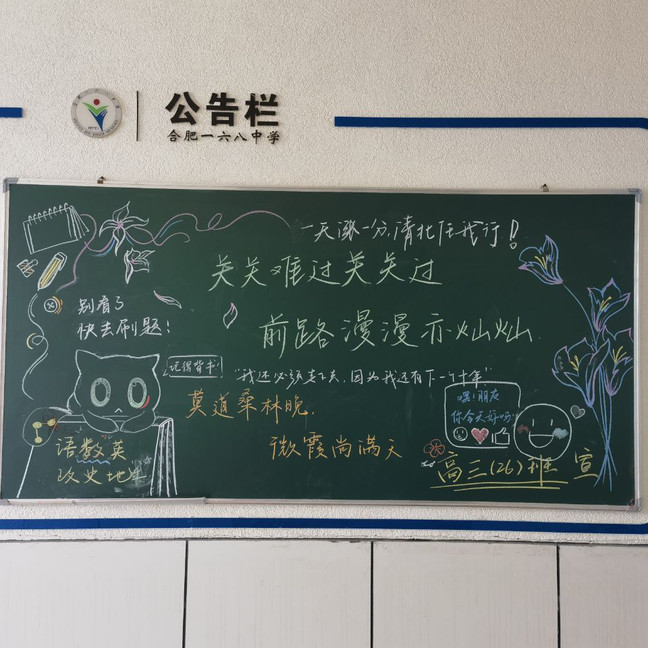 公告栏
合肥一六八中学
一天涨一分,清北任我行!
关关难过关关过
前路漫漫亦灿灿
别看了
快去刷题!
记得背书!
"我还必须走下去,因为我还有下一个十年"
莫道桑榆晚,
微霞尚满天
嘿!朋友
你今天好吗?
语数英
政史地
高三(26)班 宣